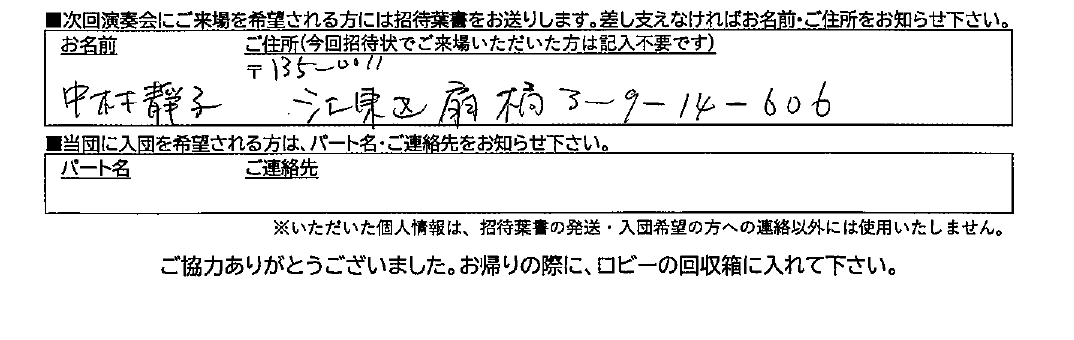 ■次回演奏会にご来場を希望される方には招待葉書をお送りします。差し支えなければお名前・ご住所をお知らせ下さい。
お名前 ご住所(今回招待状でご来場いただいた方は記入不要です)
〒135-0011
中村静子 江東区扇橋3-9-14-606
■当団に入団を希望される方は、パート名・ご連絡先をお知らせ下さい。
パート名 ご連絡先
※いただいた個人情報は、招待葉書の発送・入団希望の方への連絡以外には使用いたしません。
ご協力ありがとうございました。お帰りの際に、ロビーの回収箱に入れて下さい。